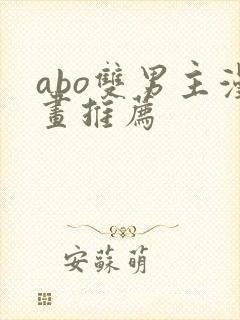 abo雙男主漫
畫推薦
安蘇萌